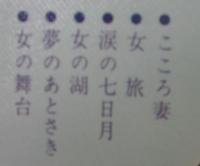 ●こころ妻
●女 旅
●涙の七日月
●女の湖
●夢のあとさき
●女の舞台